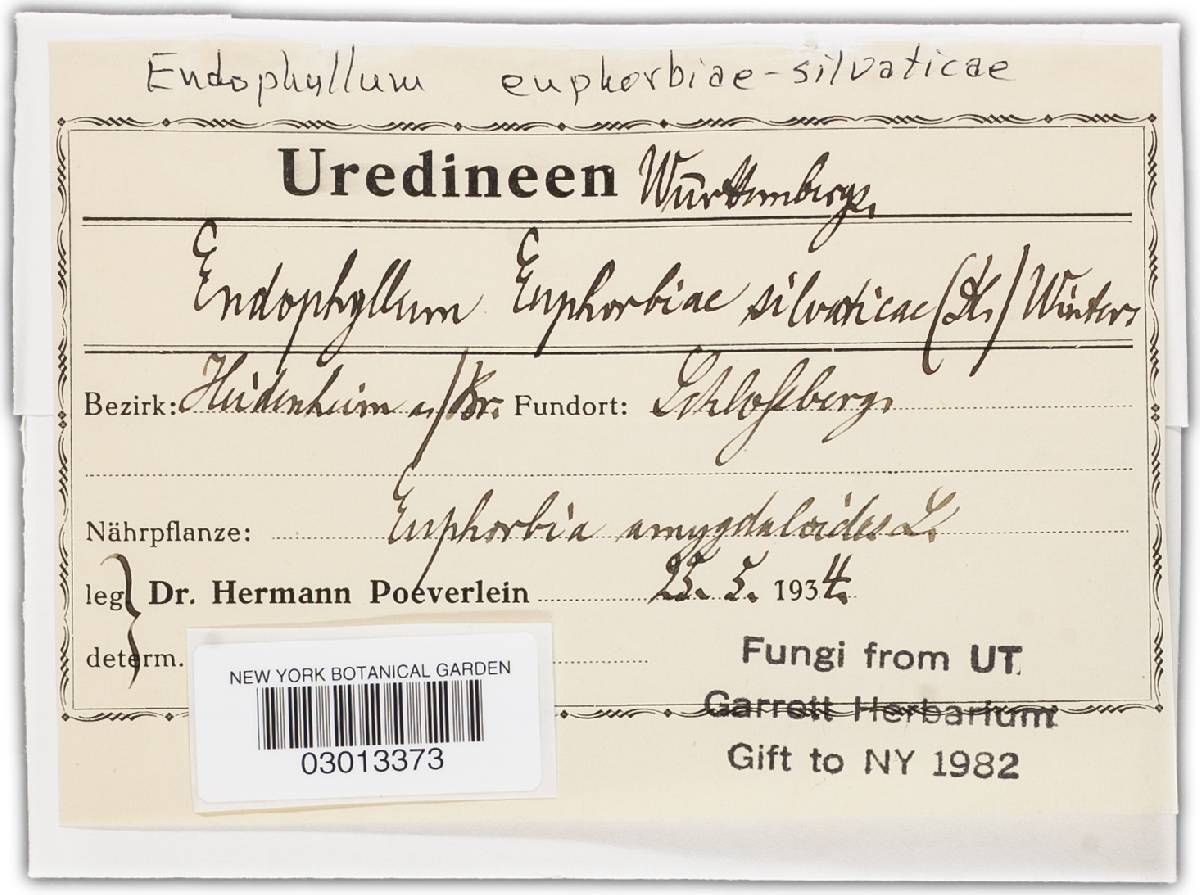 Endophyllum euphorbiae-silvaticae
Uredineen Württembergs.
Endophyllum Euphorbiae silvaticae (DC.) Winter.
Bezirk: Heidenheim a/Br. Fundort: Schloßberg.
Nährpflanze: Euphorbia amygdaloides L.
leg. Dr. Hermann Poeverlein 25. 5. 1934.
determ.
NEW YORK BOTANICAL GARDEN
03013373
Fungi from UT
Garrett Herbarium
Gift to NY 1982